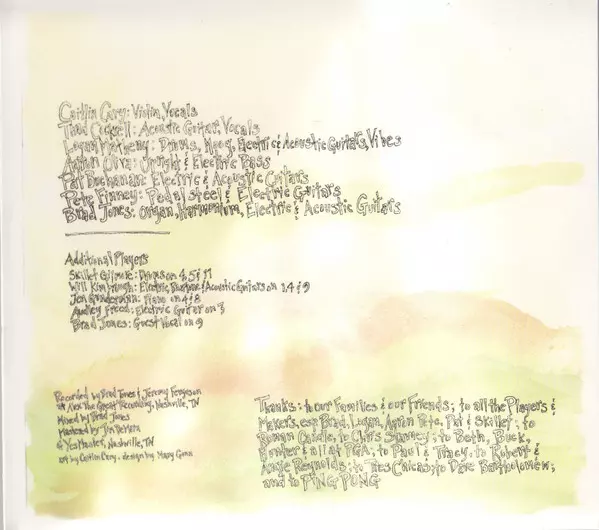 Caitlin Cary: Violin, Vocals
Thad Cockrell: Acoustic Guitar, Vocals
Logan Matheny: Drums, Moog, Electric & Acoustic Guitars, Vibes
Aaron Oliva: Upright & Electric Bass
Pat Buchanan: Electric & Acoustic Guitars
Pete Finney: Pedal Steel & Electric Guitars
Brad Jones: Organ, Harmonium, Electric & Acoustic Guitars
Additional Players
Skillet Gilmore: Drums on 4, 5 & 11
Will Kimbrough: Electric, Baritone & Acoustic Guitars on 1, 4 & 9
Jen Gunderman: Piano on 4 & 8
Audley Freed: Electric Guitar on 3
Brad Jones: Guest Vocal on 9
Recorded by Brad Jones & Jeremy Ferguson
at Alex The Great Recording, Nashville, TN
Mixed by Brad Jones
Mastered by Jim DeMain
@ Yes Master, Nashville, TN
art by Caitlin Cary. design by Mary Gunn
Thanks: to our Families & our Friends; to all the Players &
Makers, esp. Brad, Logan, Aaron, Pete, Pat & Skillet; to
Roman Candle; to Chris Stamey; to Beth, Buck,
& all at TGA; to Paul & Tracy; to Robert &
Angie Reynolds; to Tres Chicas; to Dave Bartholomew;
and to PING PONG